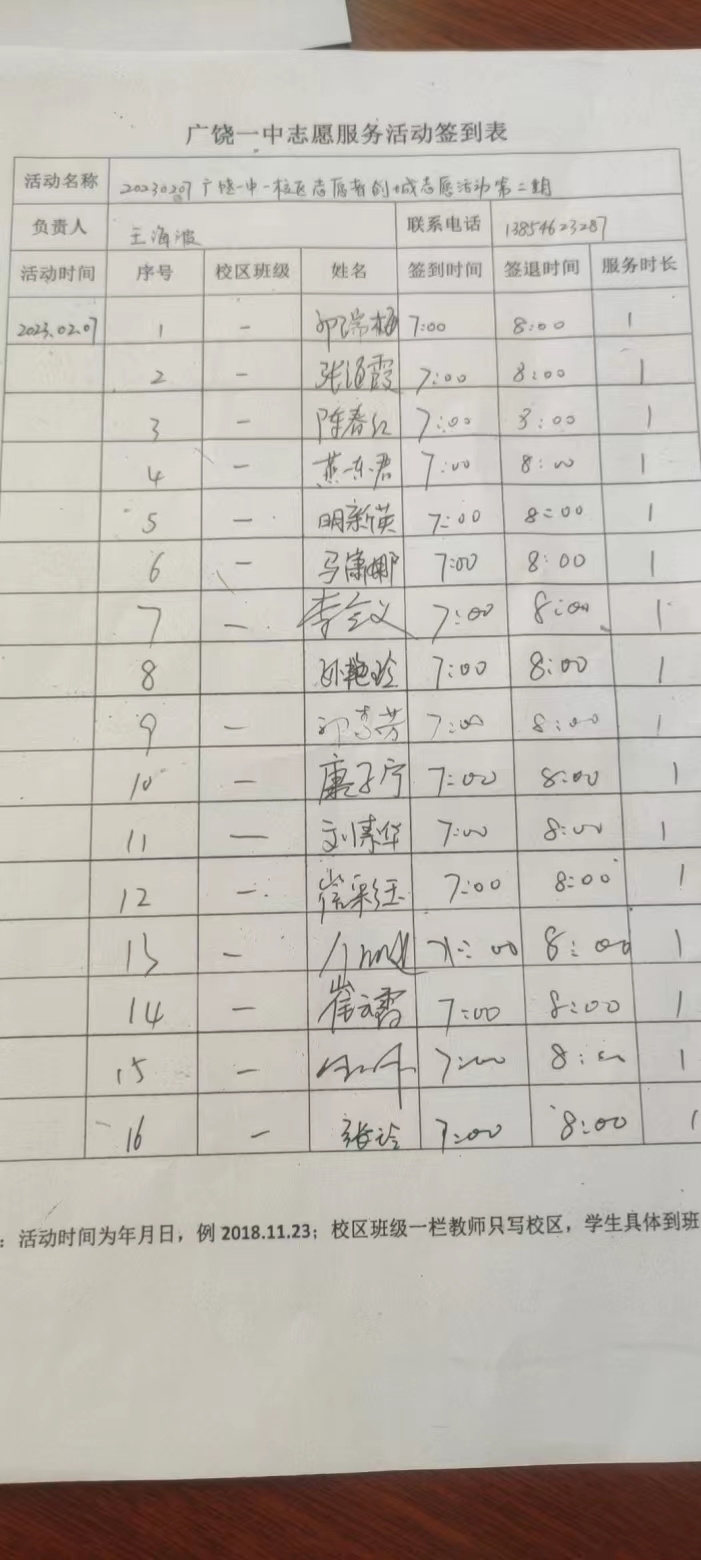 广饶一中志愿服务活动签到表
活动名称 20230207广饶一中一校区志愿者创城志愿活动第二期
负责人 王海波 联系电话 13854623287
活动时间 序号 校区班级 姓名 签到时间 签退时间 服务时长
2023.02.07 1 一 邓瑞梅 7:00 8:00 1
2 一 张海霞 7:00 8:00 1
3 一 陈春红 7:00 8:00 1
4 一 燕东君 7:00 8:00 1
5 一 明新英 7:00 8:00 1
6 一 马康娜 7:00 8:00 1
7 一 李全义 7:00 8:00 1
8 孙艳玲 7:00 8:00 1
9 一 7:00 8:00 1
10 一 廉子宁 7:00 8:00 1
11 一 刘清华 7:00 8:00 1
12 一 崔彩玉 7:00 8:00 1
13 一 7:00 8:00 1
14 一 崔云霄 7:00 8:00 1
15 一 7:00 8:00 1
16 一 张玲 7:00 8:00 1
：活动时间为年月日，例 2018.11.23；校区班级一栏教师只写校区，学生具体到班